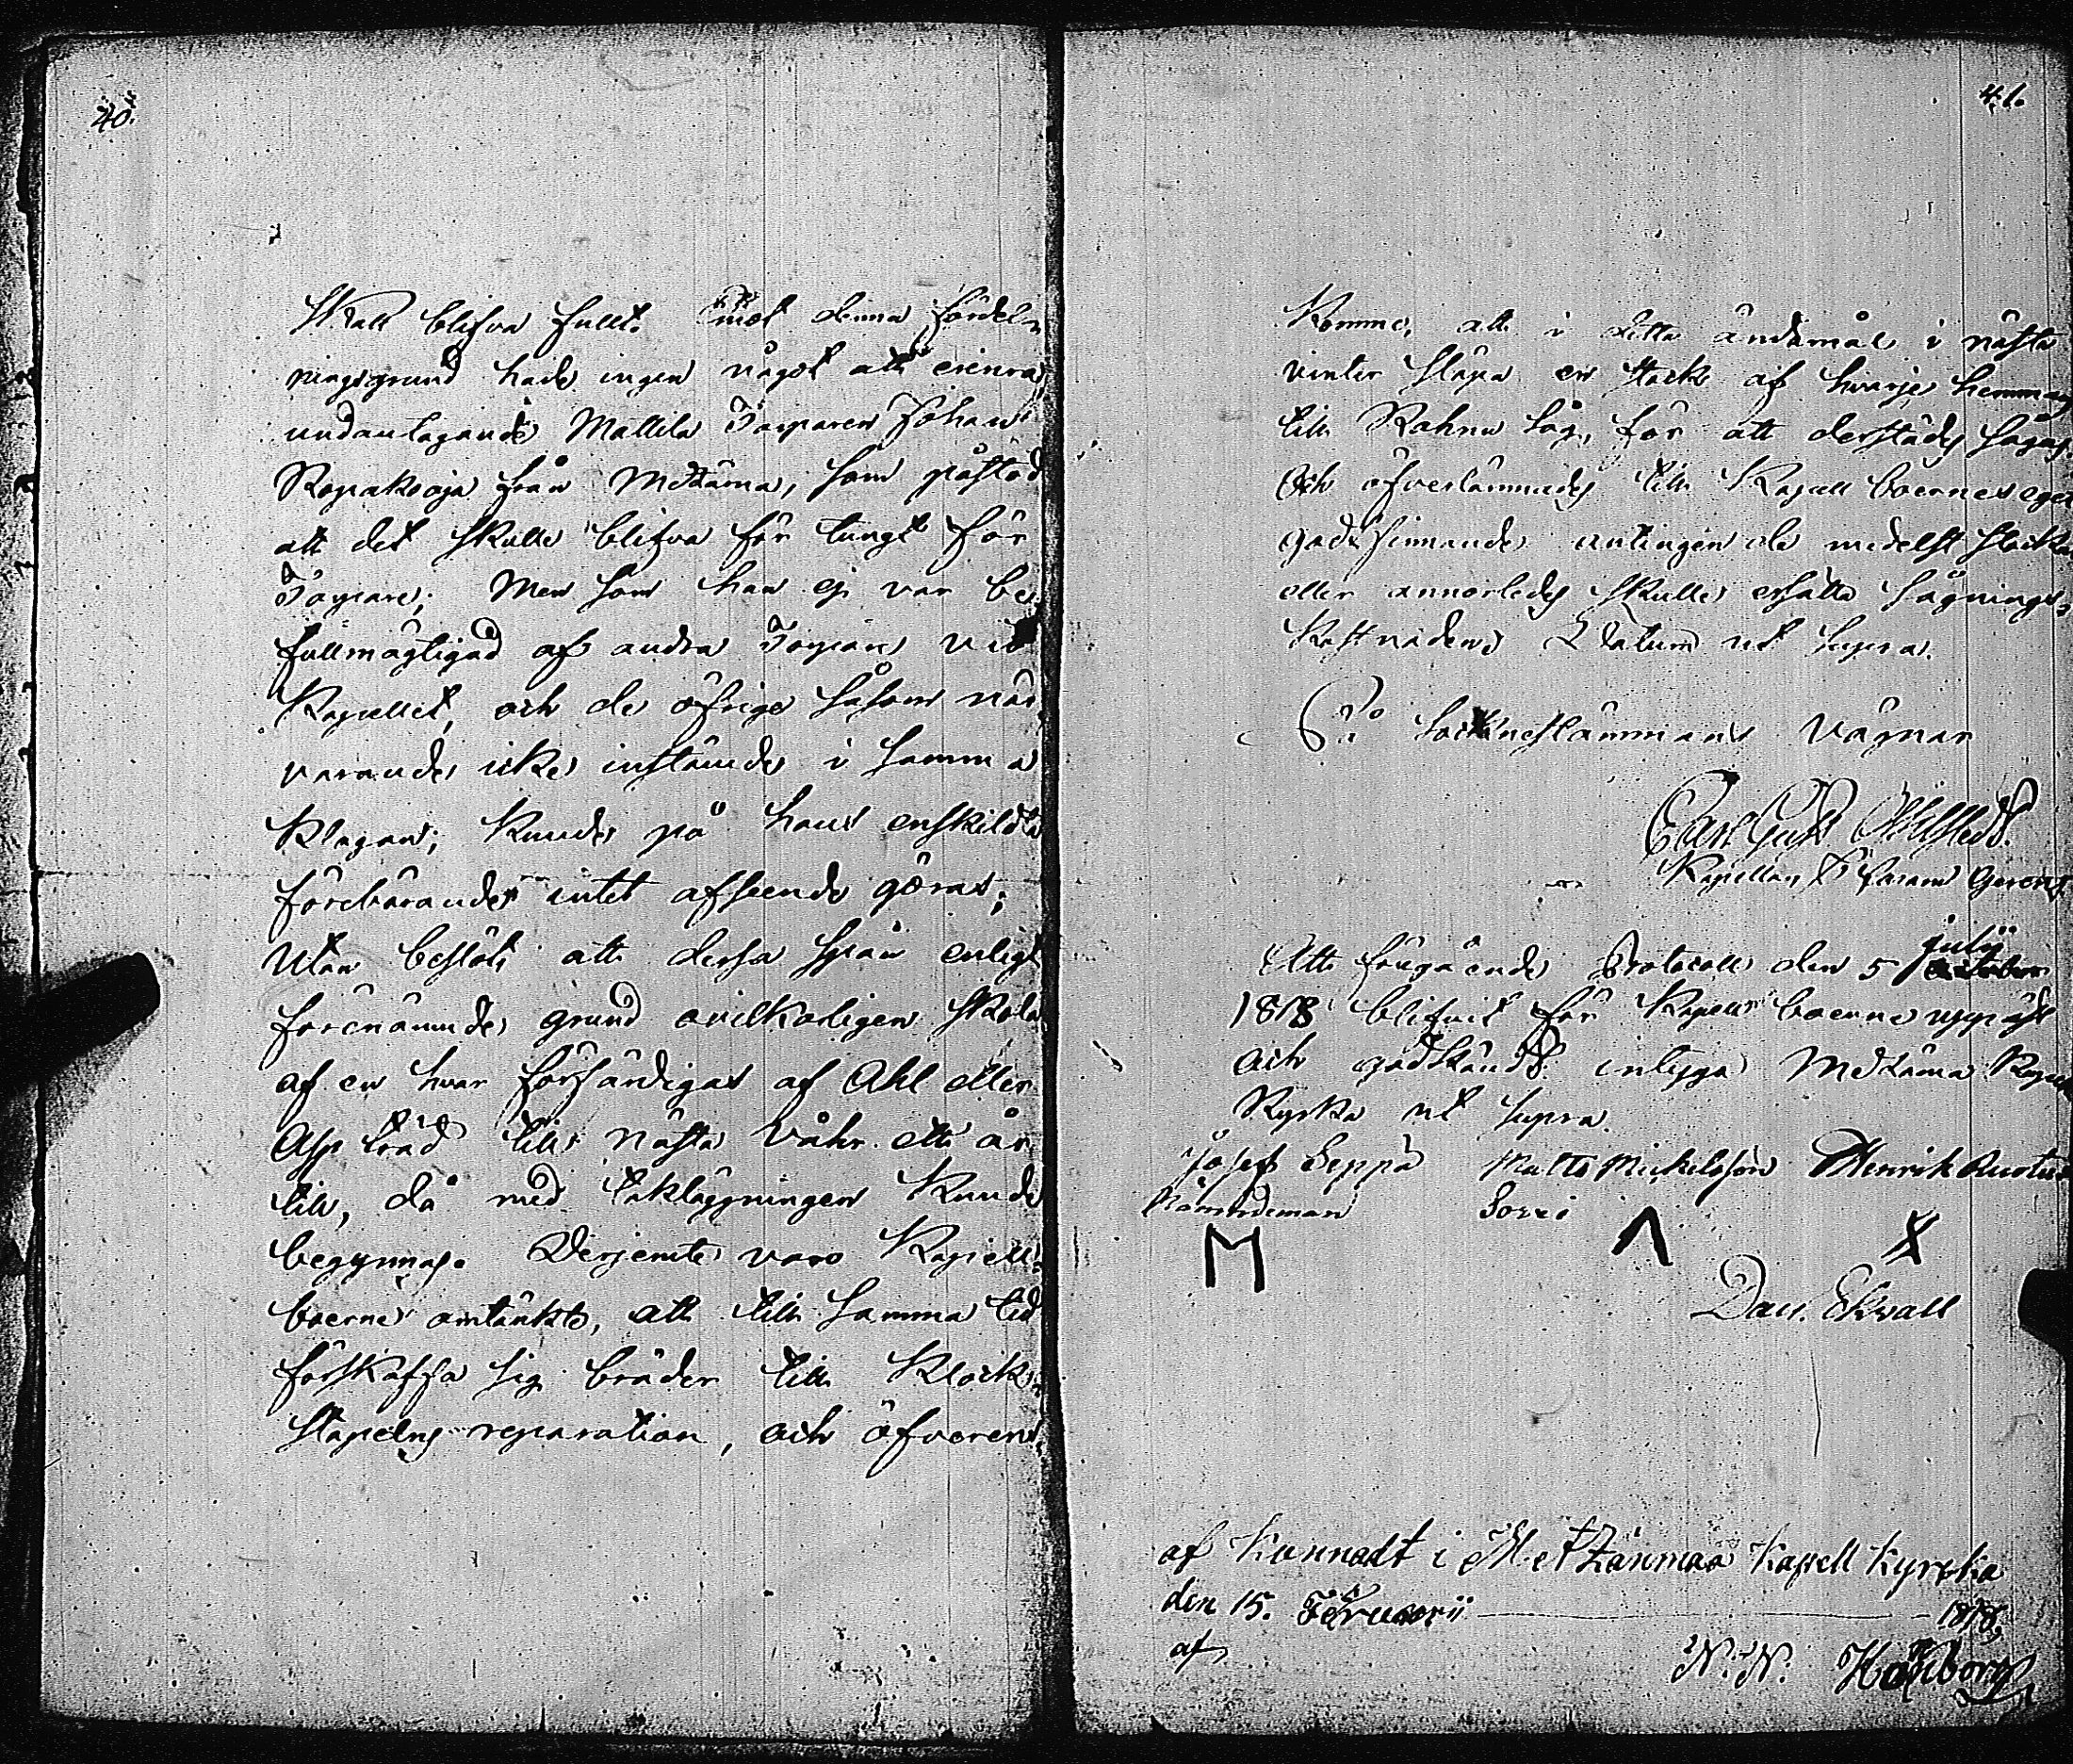 40.
Skall blifva fullt. Emot denna fördel-
ningsgrund hade ingen något att erinra,
undantagande Mallila Torparen Johan
Ropakoja från Metzäma, som påstod
att det skulle blifva för tungt för
Torpare; Men som han ej var be-
fullmägtigad af andra Torpare vid
Kapellet, och de öfrige såsom när-
varande icke instämde i samma
klagan; kunde på hans enskildta
förebärande intet afseende göras;
Utan beslöts att dessa spån enligt
förenämnde grund ovilkorligen skola
af en hvar förfärdigas af Ahl eller
Asp träd till nästa Våhr ett år
till, då med takläggningen kunde
begynnas. Derjemte voro Kapell-
boerne omtänkte, att till samma tid
förskaffa sig bräder till Klock-
stapelns reparation, och öfverens-
41.
Kommo, att i detta ändamål i nästa
vinter släpa en stock af hvarje hemman
till Rahnu såg, för att derstädes sågas
Och öfverlämnades till Kapell boernes eget
godtfinnande antingen de medelst stockar
eller annorledes skulle ersätta Sågnings-
Kostnaden. Datum ut Supra.
Sockneståmmans Vägnar
Carl Gust.
Kapellan
Att föregående Protocoll den 5 julii
1818 blifvit för Kapell boerne uppläst
och godkändt intygga Metzäma Kapell
Kyrka ut Supra.
Josef Seppä Matts Mickelsson Henrik
Nämndeman Sorri
M Λ X
Dan. Ekvall
af Kunnadt i Metzänmaa Kapell Kyrcka
den 15. Februarii 1818,
af N. N.